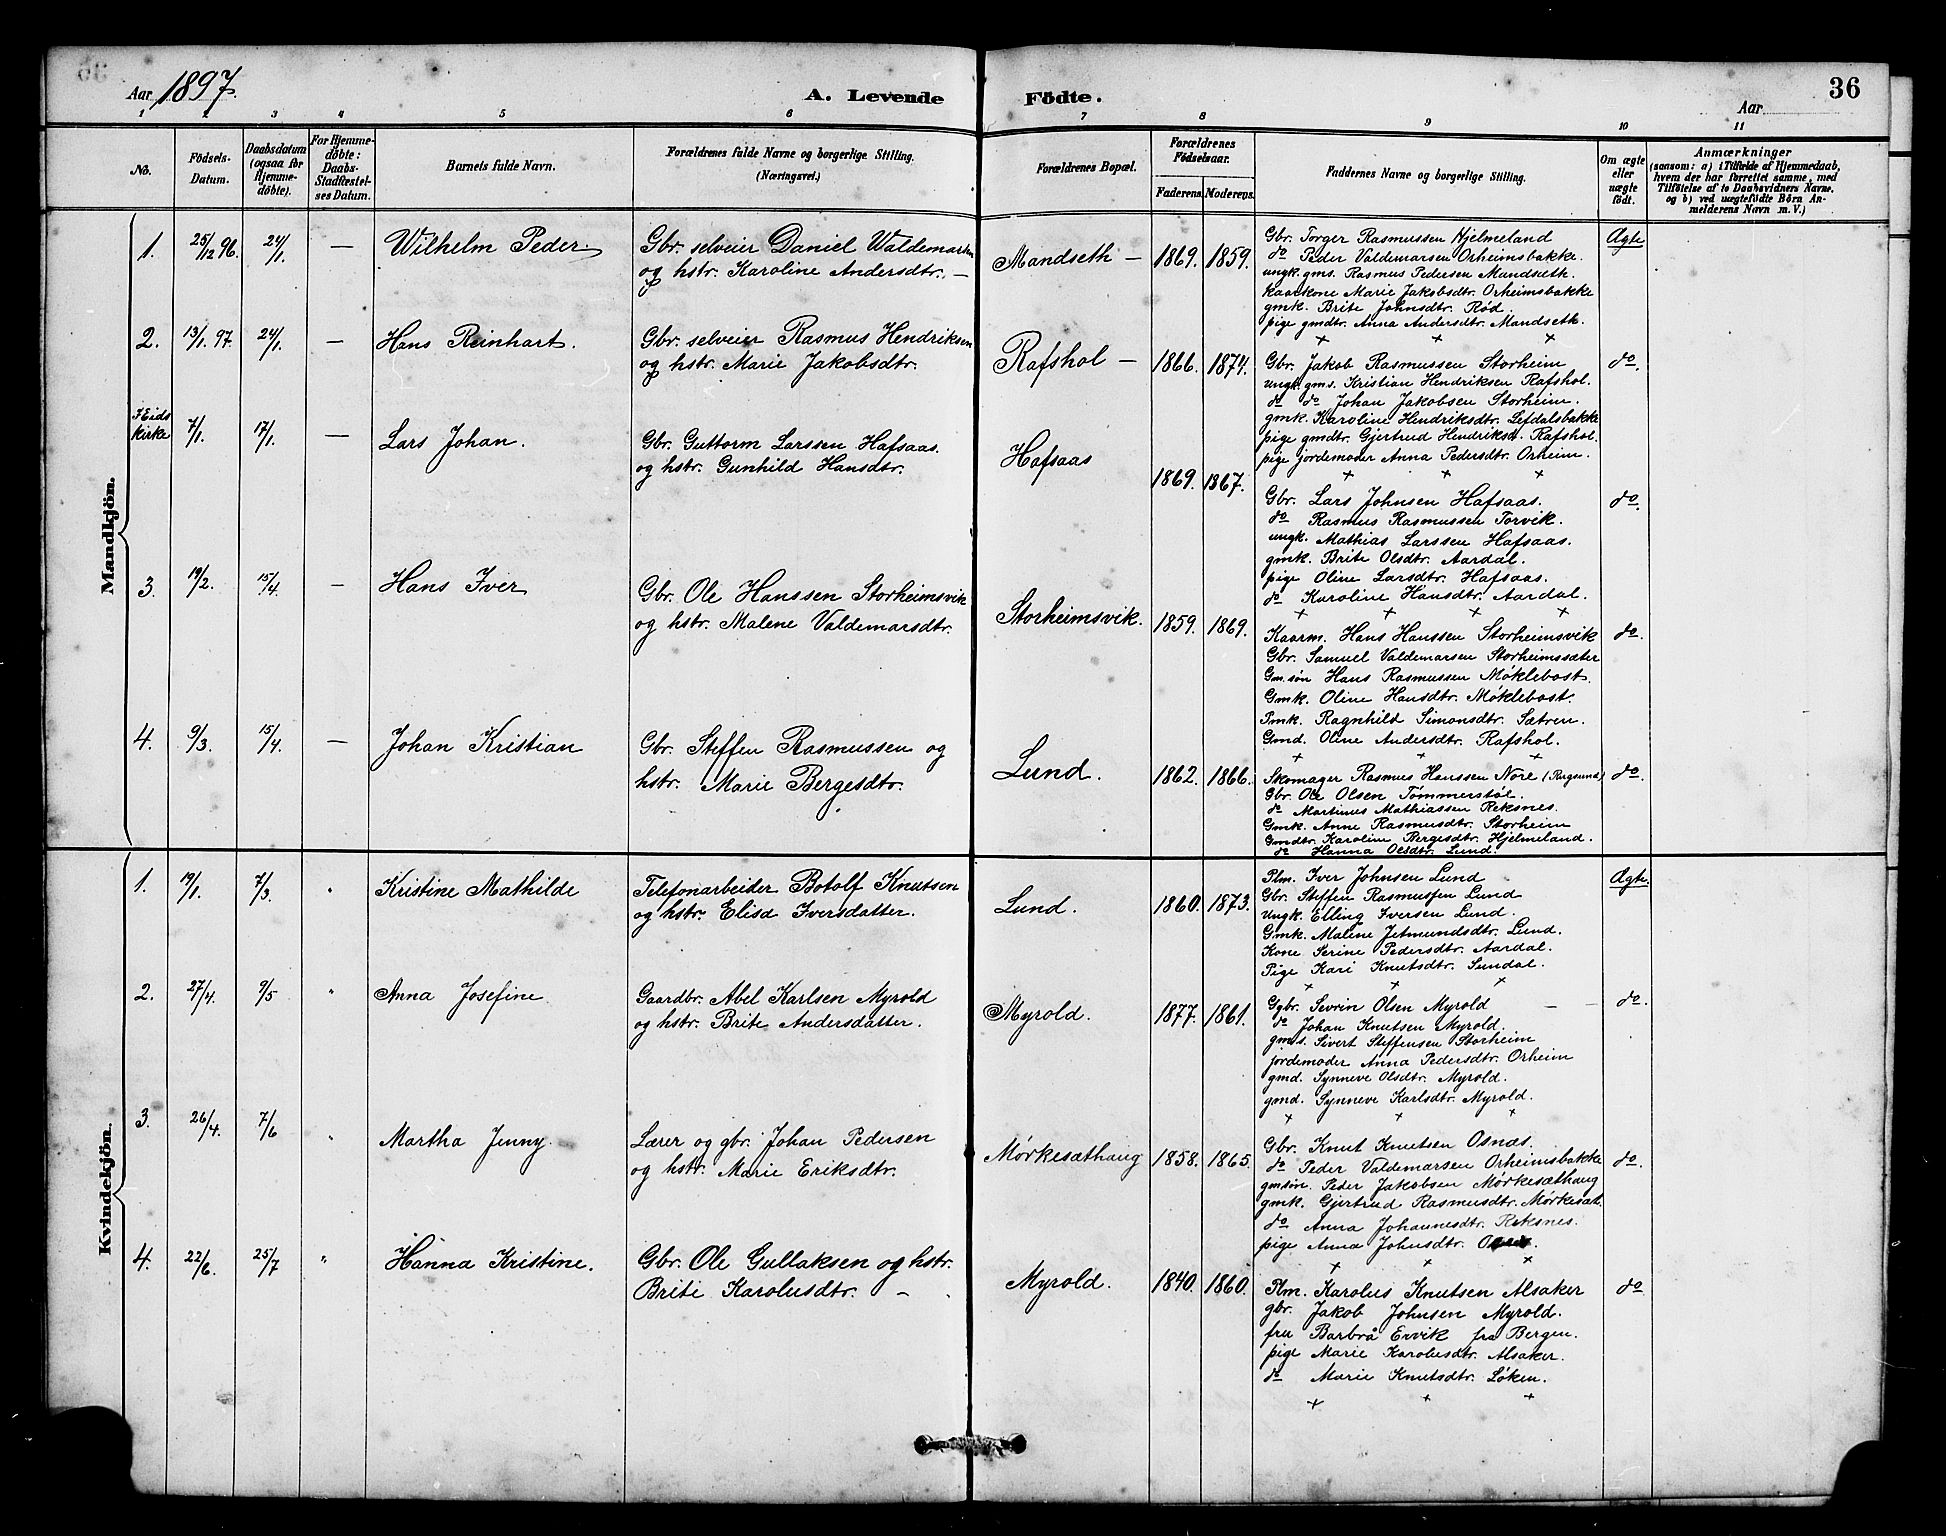 Aar 1897.
A. Levende Födte.
Aar
36
1 2 3 4 5 6 7 8 9 10 11
No.
Födsels-Datum.
Daabsdatum (ogsaa for Hjemmedöbte).
For Hjemmedöbte: Daabs-Stadfæstelses Datum.
Barnets fulde Navn.
Forældrenes fulde Navne og borgerlige Stilling.
(Næringsvei.)
Forældrenes Bopæl.
Forældrenes Födselsaar.
Faderens. Moderens.
Faddernes Navne og borgerlige Stilling.
Om ægte eller uægte født.
Anmærkninger
(saasom: a) i Tilfælde af Hjemmedaab,
hvem der har forrettet samme, med
Tilföielse af to Daabsvidners Navne.
og b) ved uægtefödte Börn An-
melderens Navn m. V.)
Mandkjön.
1. 25/12 96. 24/1. — Wilhelm Peder.
Gbr. selveier Daniel Waldemarsen
og hstr. Karoline Andersdtr. —
Mandseth — 1869. 1859.
Gbr. Torger Rasmussen Hjelmeland
do Peder Valdemarsen Orheimsbakke.
ungk. gms. Rasmus Pedersen Mandseth.
kaarkone Marie Jakobsdtr. Orheimsbakke
gmk. Brite Johnsdtr. Rød.
pige gmdtr. Anna Andersdtr. Mandseth.
+ + +
Ægte
2. 13/1. 97. 24/1. — Hans Reinhart.
Gbr. selveier Rasmus Hendriksen
og hstr. Marie Jakobsdtr.
Rafshol — 1866. 1874.
Gbr. Jakob Rasmussen Storheim
ungk. gms. Kristian Hendriksen Rafshol.
do do Johan Jakobsen Storheim.
gmk. Karoline Hendriksdtr. Lefdalsbakke
pige gmdtr. Gjertrud Hendriksd. Rafshol.
pige jordemoder Anna Pedersdtr. Orheim.
+ + +
do.
I Eids kirke 7/1. 17/1. — Lars Johan.
Gbr. Guttorm Larssen Hafsaas.
og hstr. Gunhild Hansdtr.
Hafsaas 1869. 1867.
Gbr. Lars Johnsen Hafsaas.
do Rasmus Rasmussen Torvik.
ungk. Mathias Larssen Hafsaas.
gmk. Brite Olsdtr. Aardal.
pige Oline Larsdtr. Hafsaas.
do Karoline Hansdtr. Aardal.
+ + + +
do.
3. 19/2. 15/4. — Hans Iver
Gbr. Ole Hanssen Storheimsvik
og hstr. Malene Valdemarsdtr.
Storheimsvik. 1859. 1869.
Kaarm. Hans Hanssen Storheimsvik
Gbr. Samuel Valdemarsen Storheimssæter
Gm.søn Hans Rasmussen Møklebost.
Gmk. Oline Hansdtr. Møklebost.
Pmk. Ragnhild Simonsdtr. Sætren.
Gmd. Oline Andersdtr. Rafshol.
+ + +
do.
4. 9/3. 15/4. — Johan Kristian
Gbr. Steffen Rasmussen og
hstr. Marie Bergesdtr.
Lund. 1862. 1866.
Skomager Rasmus Hanssen Nore (Rugsund)
Gbr. Ole Olsen Tømmerstøl.
do Martinus Mathiassen Reksnes.
Gmk. Anne Rasmusdtr. Storheim
Gmdtr. Karoline Bergesdtr. Hjelmeland.
do Hanna Olsdtr. Lund.
do.
Kvindekjön.
1. 19/1. 7/3. " Kristine Mathilde
Telefonarbeider Botolf Knutsen
og hstr. Elisa Iversdatter.
Lund. 1860. 1873.
Plm. Iver Johnsen Lund
Gbr. Steffen Rasmussen Lund
Ungk. Elling Iversen Lund.
Gmk. Maline Jetmundsdtr. Lund.
Kone Serine Pedersdtr. Aardal.
Pige Kari Knutsdtr. Sundal.
+ + +
Ægte.
2. 27/4. 9/5. " Anna Josefine.
Gaardbr. Abel Karlsen Myrold
og hstr. Brite Andersdatter.
Myrold. 1877. 1861.
Ggbr. Sevrin Olsen Myrold — —
do Johan Knutsen Myrold.
gm.s. Sivert Steffensen Storheim
jordemoder Anna Pedersdtr. Orheim
gmd. Synneve Olsdtr. Myrold.
gmd. Synneve Karlsdtr. Myrold.
+ + +
do.
3. 26/4. 7/6 " Martha Jenny.
Lærer og gbr. Johan Pedersen
og hstr. Marie Eriksdtr.
Mørkesæthaug 1858. 1865.
Gbr. Knut Knutsen Osnæs.
do Peder Valdemarsen Orheimsbakke
gmsøn. Peder Jakobsen Mørkesæthaug
gmk. Gjertrud Rasmusdtr. Mørkesæt.
do Anna Johannesdtr. Reksnes.
pige Anna Johnsdtr.
+ + +
do.
4. 22/6. 25/7 " Hanna Kristine.
Gbr. Ole Gullaksen og hstr.
Brite Karolusdtr. —
Myrold. 1840. 1860.
Plm. Karolus Knutsen Alsaker
gbr. Jakob Johnsen Myrold.
fru Barbrå Ervik fra Bergen.
pige Marie Karolusdtr. Alsaker.
do Marie Knutsdtr. Løken.
+ + +
do